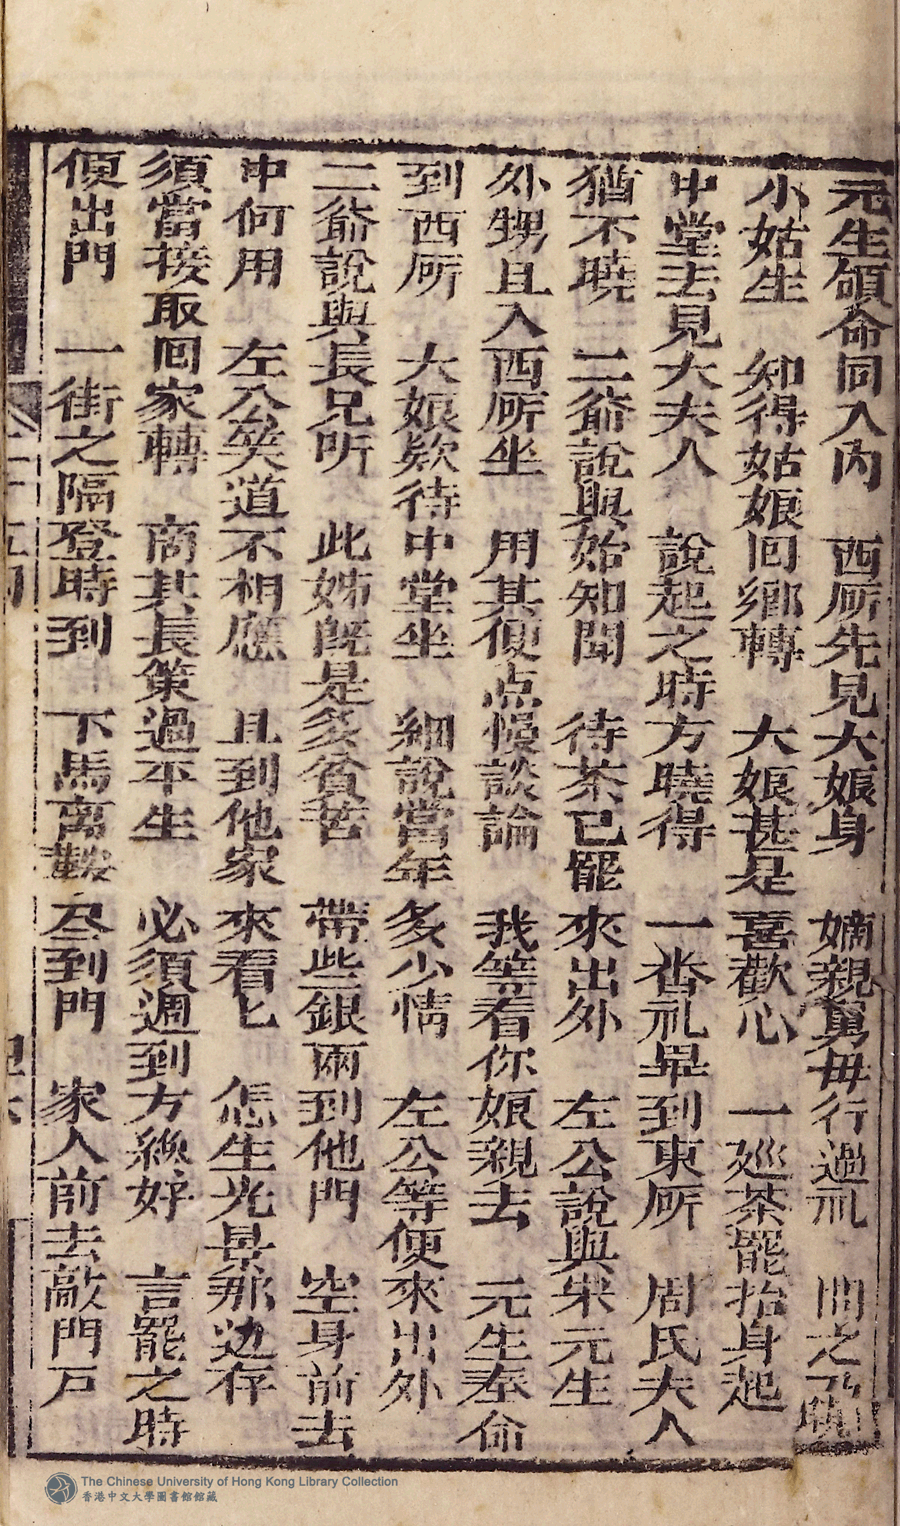 元生領命同入內 西廂先見大娘身 嫡親舅母行過礼 問之乃
小姑生 知得姑娘囘鄉轉 大娘甚是喜歡心 一巡茶罷抬身起
中堂去見大夫人 說起之時方曉得 一畨礼畢到東廂 周氏夫人
猶不曉 二爺說與始知聞 待茶已罷來出外 左公說與宋元生
外甥且入西廂坐 用其便点慢談論 我等看你娘親去 元生奉命
到西廂 大娘欵待中堂坐 細說當年多少情 左公等便來出外
二爺說與長兄听 此姊旣是多貧苦 帶些銀兩到他門 空身前去
中何用 左公笑道不相應 且到他家來看匕 怎生光景那边存
須當接取囘家轉 商其長策過平生 必須週到方纔好 言罷之時
便出門 一街之隔登時到 下馬离鞍尽到門 家人前去敲門戶
The Chinese University of Hong Kong Library Collection
香港中文大學圖書館館藏